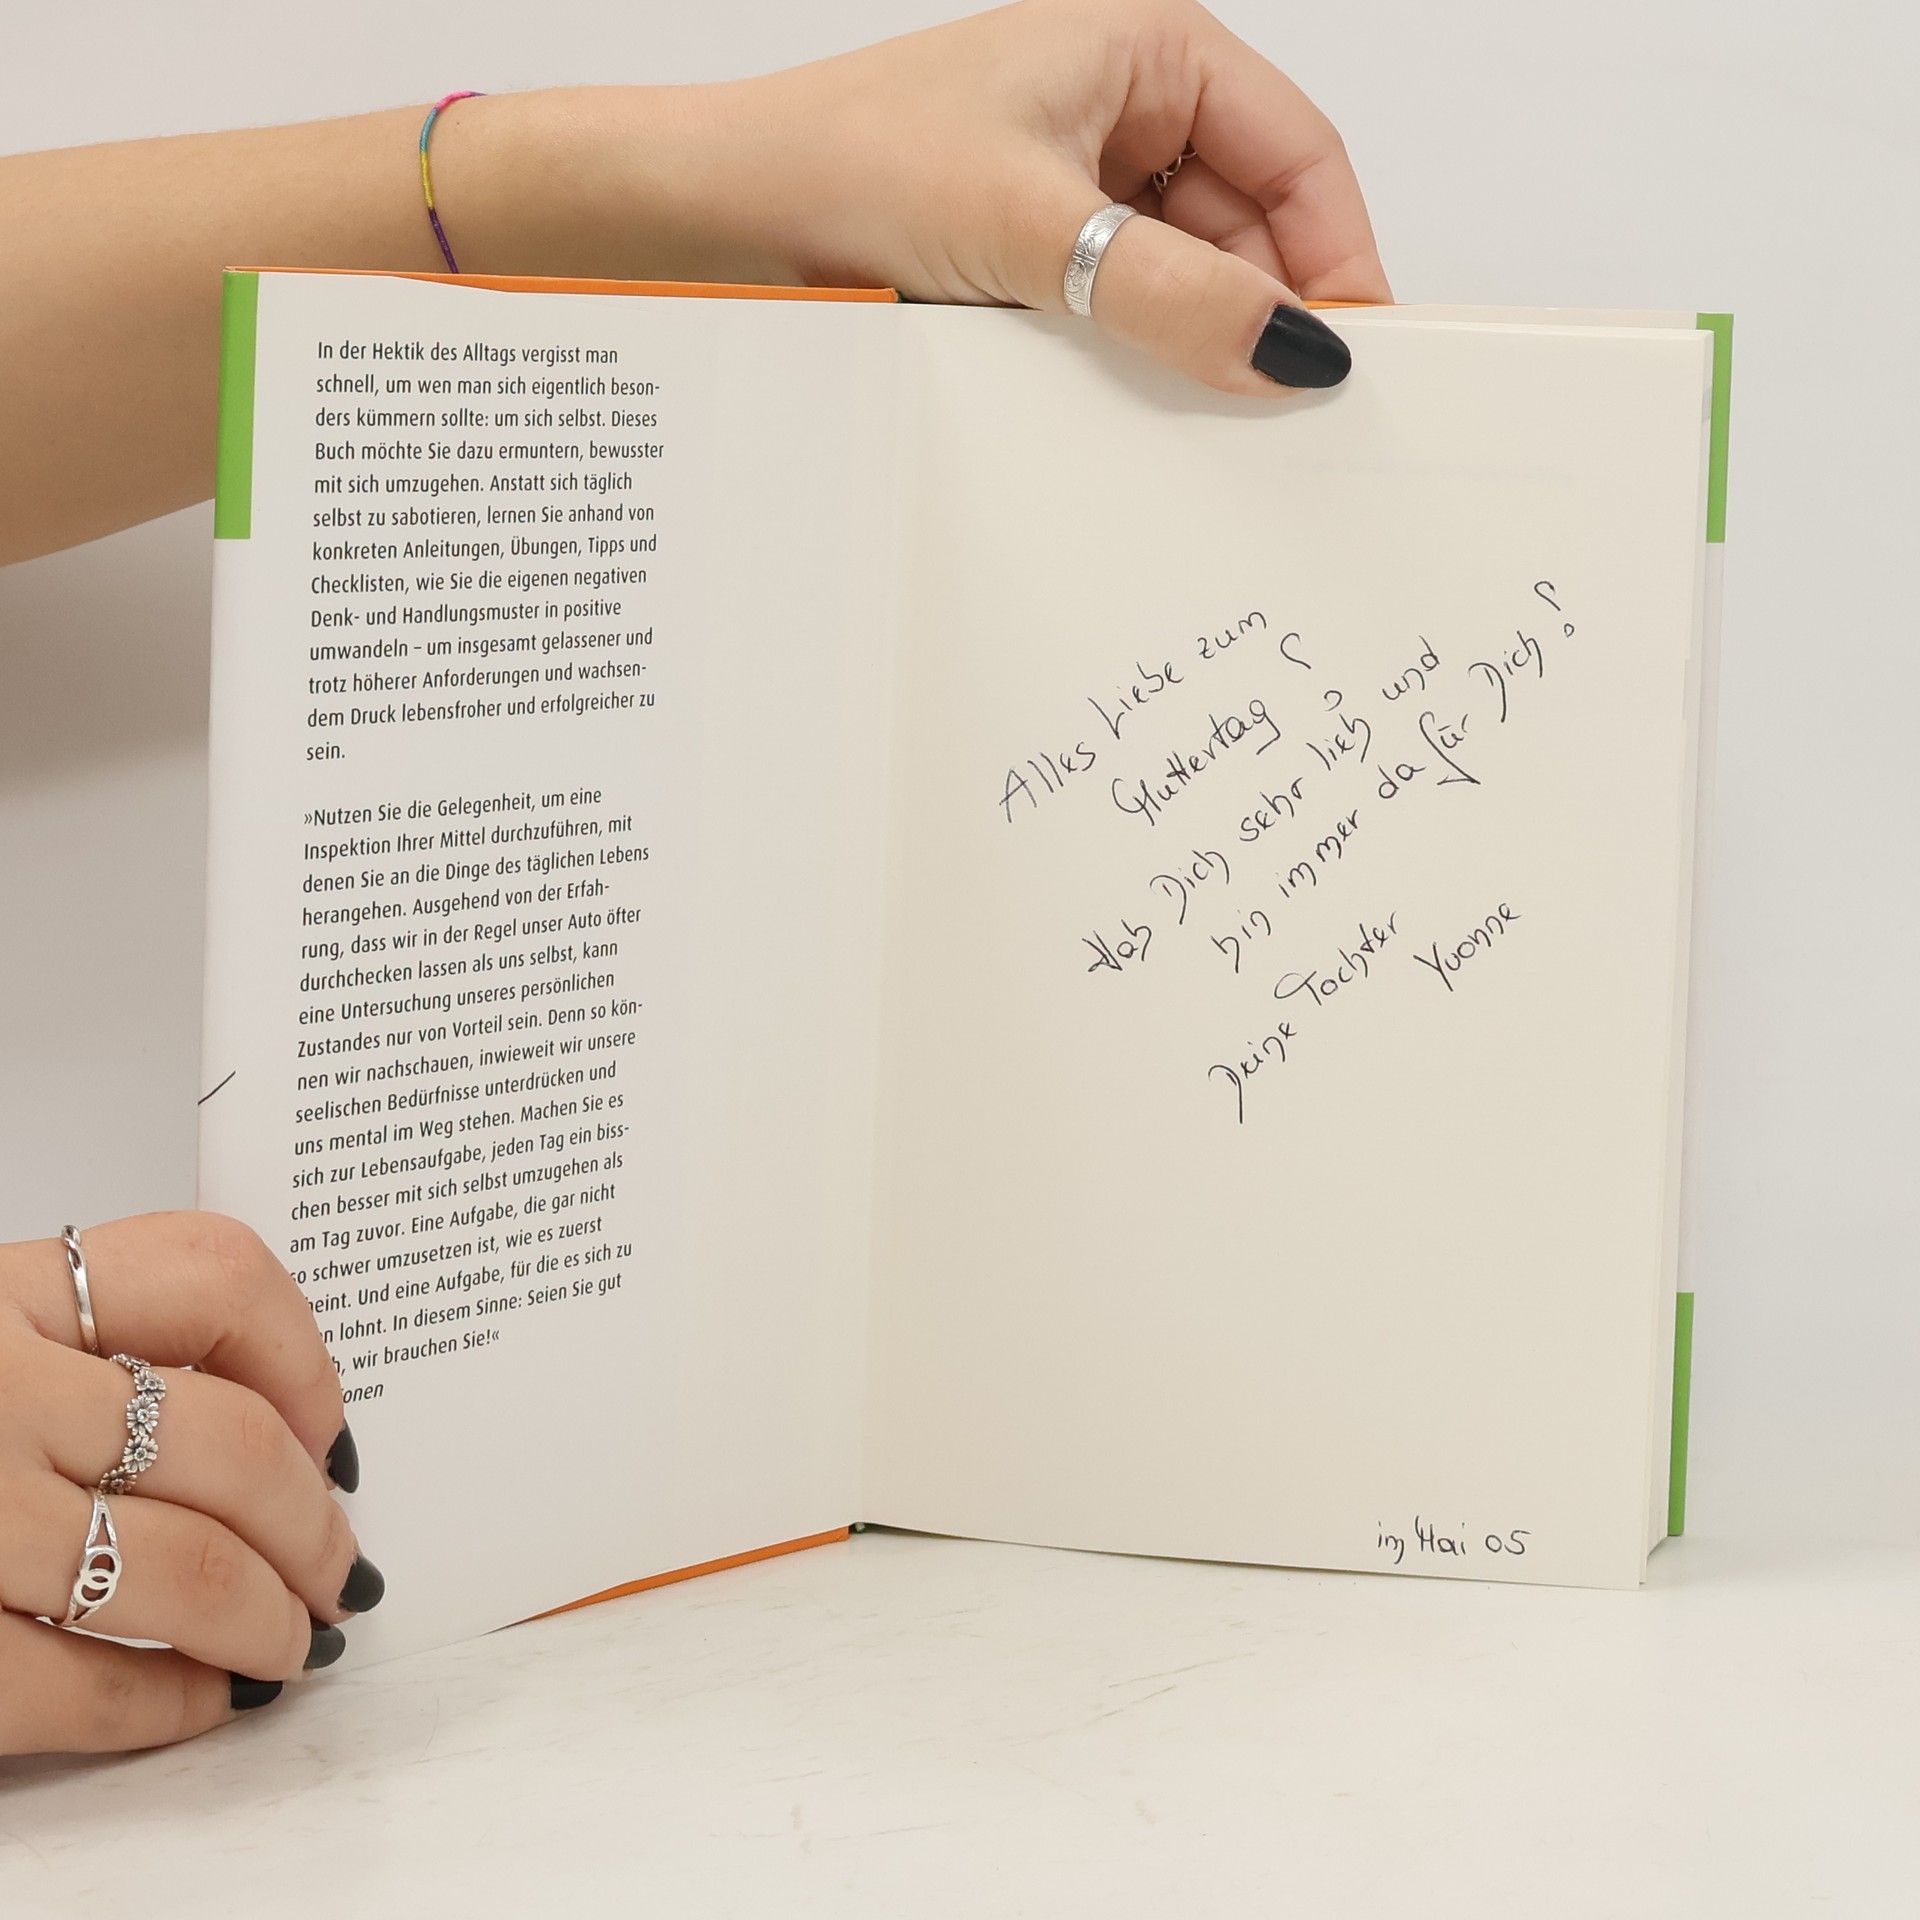 In der Hektik des Alltags vergisst man
schnell, um wen man sich eigentlich beson-
ders kümmern sollte: um sich selbst. Dieses
Buch möchte Sie dazu ermuntern, bewusster
mit sich umzugehen. Anstatt sich täglich
selbst zu sabotieren, lernen Sie anhand von
konkreten Anleitungen, Übungen, Tipps und
Checklisten, wie Sie die eigenen negativen
Denk- und Handlungsmuster in positive
umwandeln – um insgesamt gelassener und
trotz höherer Anforderungen und wachsen-
dem Druck lebensfroher und erfolgreicher zu
sein.
»Nutzen Sie die Gelegenheit, um eine
Inspektion Ihrer Mittel durchzuführen, mit
denen Sie an die Dinge des täglichen Lebens
herangehen. Ausgehend von der Erfah-
rung, dass wir in der Regel unser Auto öfter
durchchecken lassen als uns selbst, kann
eine Untersuchung unseres persönlichen
Zustandes nur von Vorteil sein. Denn so kön-
nen wir nachschauen, inwieweit wir unsere
seelischen Bedürfnisse unterdrücken und
uns mental im Weg stehen. Machen Sie es
sich zur Lebensaufgabe, jeden Tag ein biss-
chen besser mit sich selbst umzugehen als
am Tag zuvor. Eine Aufgabe, die gar nicht
so schwer umzusetzen ist, wie es zuerst
heint. Und eine Aufgabe, für die es sich zu
n lohnt. In diesem Sinne: Seien Sie gut
h, wir brauchen Sie!«
onen
Alles Liebe zum
Muttertag!
Hab Dich sehr lieb und
bin immer da für Dich!
Deine Tochter
Yvonne
im Mai 05